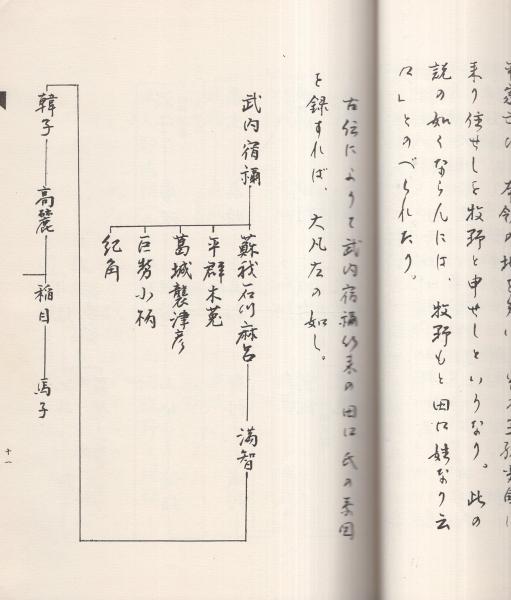 来り住せしを牧野と申せしというなり。此の
説の如くならんには、牧野もと田口姓なり云
々」とのべられたり。
古伝によりて武内宿禰以来の田口氏の系図
を録すれば、大凡左の如し。
武内宿禰
蘇我石川麻呂
満智
平群木菟
葛城襲津彦
巨勢小柄
紀角
韓子
高麗
稲目
馬子
十一